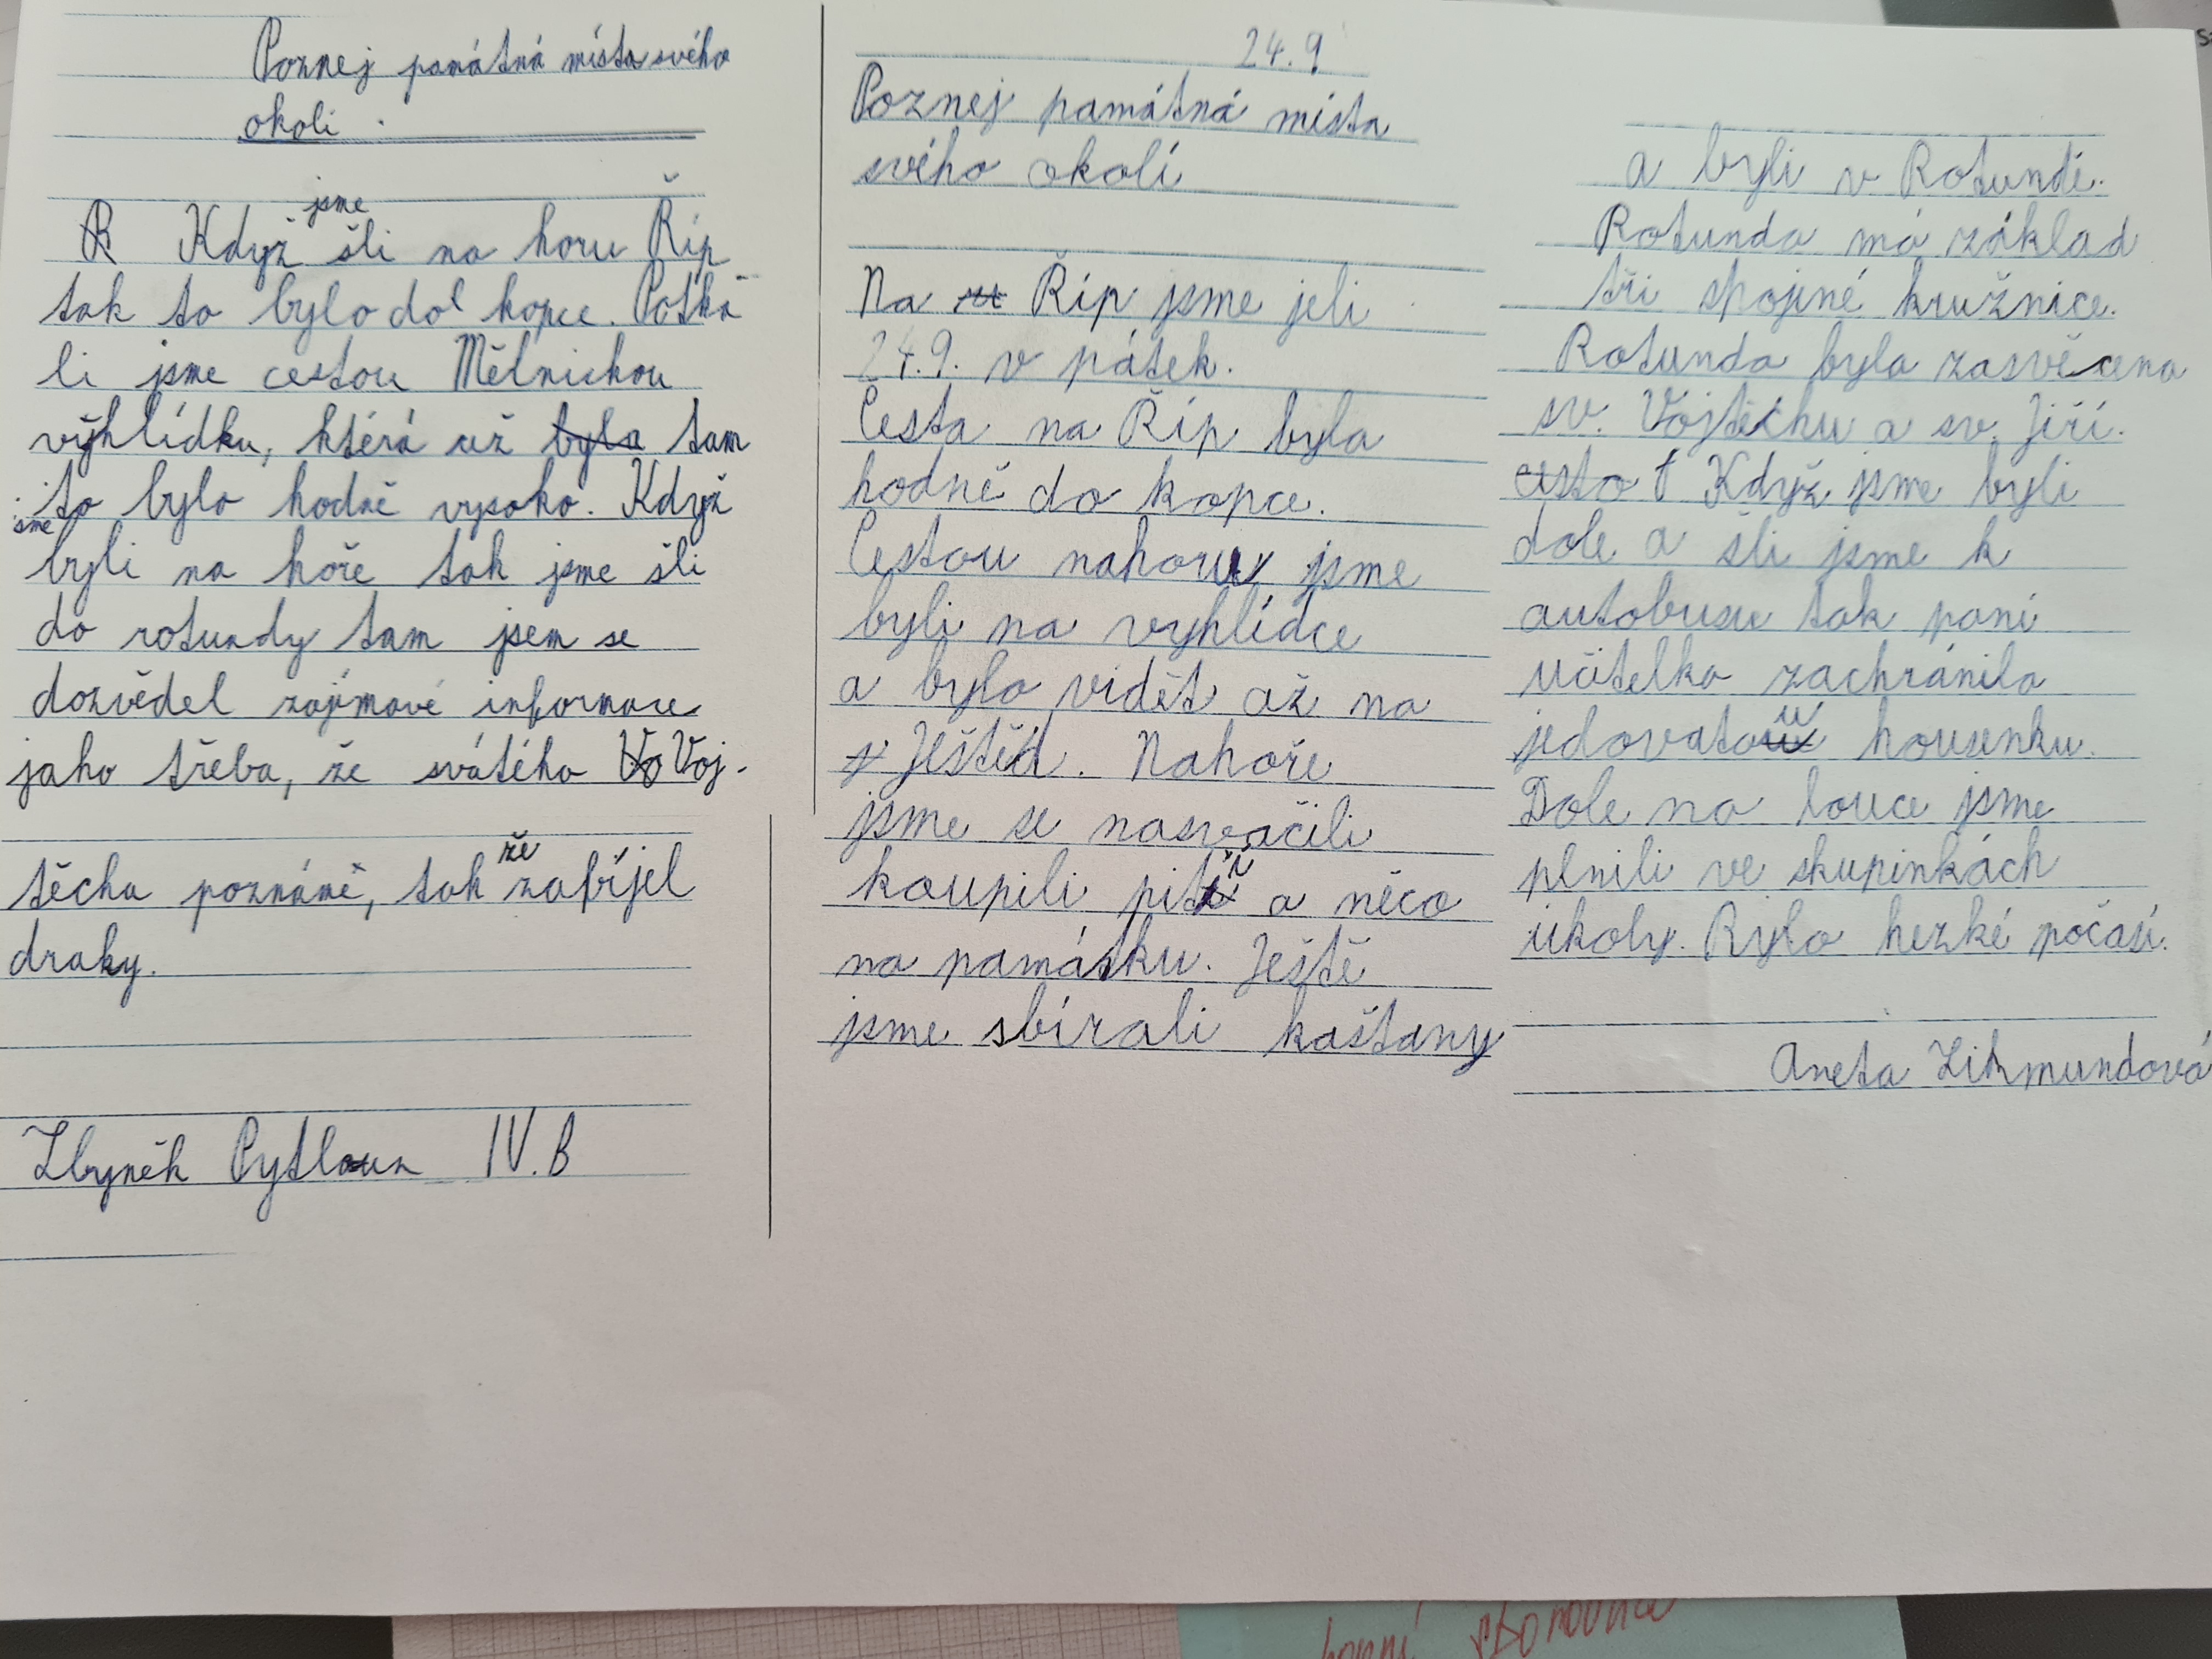 Poznej památná místa svého
okolí.
Když jsme šli na horu Říp
tak to bylo do kopce. Potká
li jsme cestou Mělnickou
vyhlídku, která až byla tam
to bylo hodně vysoko. Když
sme byli na hoře tak jsme šli
do rotundy tam jsem se
dozvěděl zajímavé informace
jako třeba, že svatého Vo Voj-
těcha poznáme, tak že zabíjel
draky.
Zbyněk Pytloun IV.B
24.9
Poznej památná místa
svého okolí
Na Říp jsme jeli
24.9. v pátek.
Cesta na Říp byla
hodně do kopce.
Cestou nahoru jsme
byli na vyhlídce
a bylo vidět až na
Ještěd. Nahoře
jsme se nasvačili
koupili pití a něco
na památku. Ještě
jsme sbírali kaštany
a byli v Rotundě.
Rotunda má základ
tři spojené kružnice.
Rotunda byla zasvěcena
sv. Vojtěchu a sv. Jiří.
cesto Když jsme byli
dole a šli jsme k
autobusu tak paní
učitelka zachránila
jedovatou housenku.
Dole na louce jsme
plnili ve skupinkách
úkoly. Bylo hezké počasí.
Aneta Zikmundová
horní